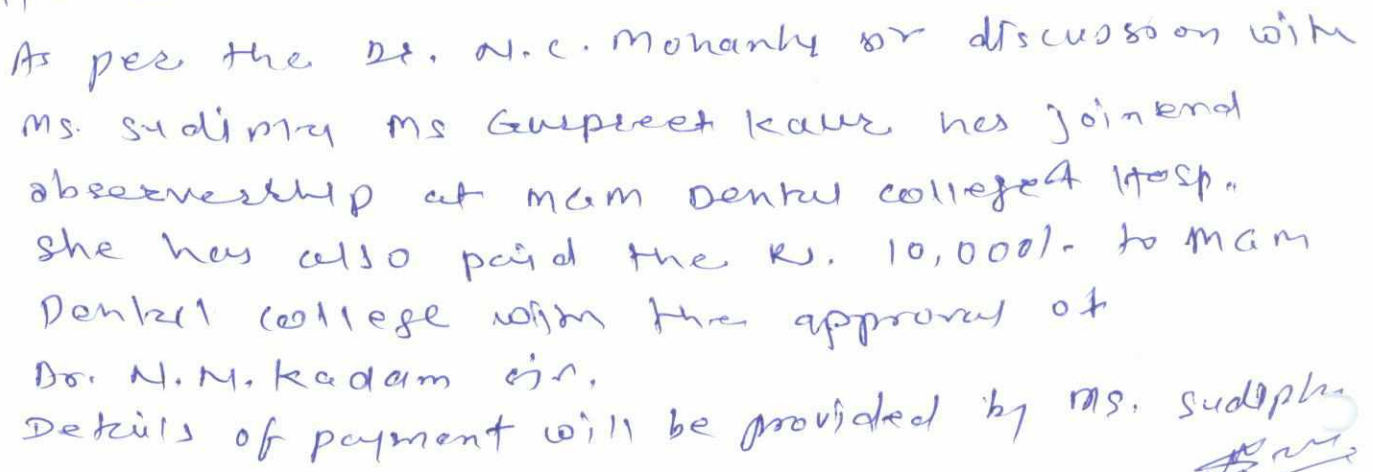 As per the Dr. N.C. Mohanty sr discussoon with
Ms. Ms Gurpreet Kaur hes joinend
observership at MGM Dental college & Hosp.
She has also paid the Rs. 10,000/- to MGM
Dental college with the approval of
Dr. N.M. Kadam sir.
Details of payment will be provided by Ms.